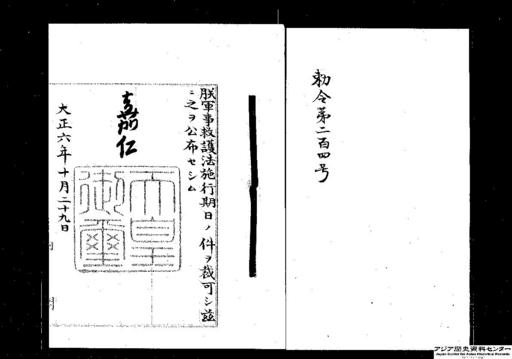 勅令第二百四号
朕軍事救護法施行期日ノ件ヲ裁可シ茲
ニ之ヲ公布セシム
嘉仁
天皇御璽
大正六年十月二十九日
アジア歴史資料センター
Japan Center for Asian Historical Records